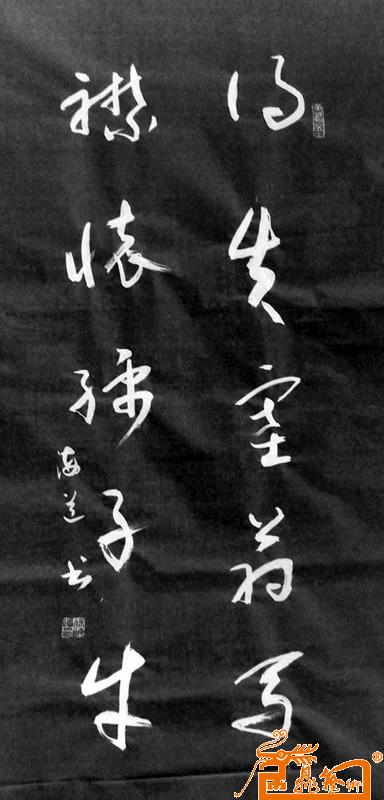 得失塞翁马
襟怀孺子牛
海莲书